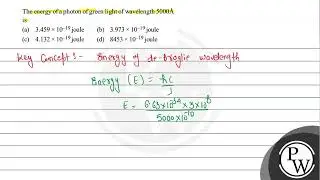 The energy of a photon of green light of wavelength 5000Å
is
(a) 3.459 × 10⁻¹⁹ joule (b) 3.973 × 10⁻¹⁹ joule
(c) 4.132 × 10⁻¹⁹ joule (d) 8453 × 10⁻¹⁹ joule
Key Concept :- Energy of de-Broglie wavelength
Energy (E) = hc
λ
E = 6.63×10⁻³⁴ × 3×10⁸
5000 ×10⁻¹⁰
PW